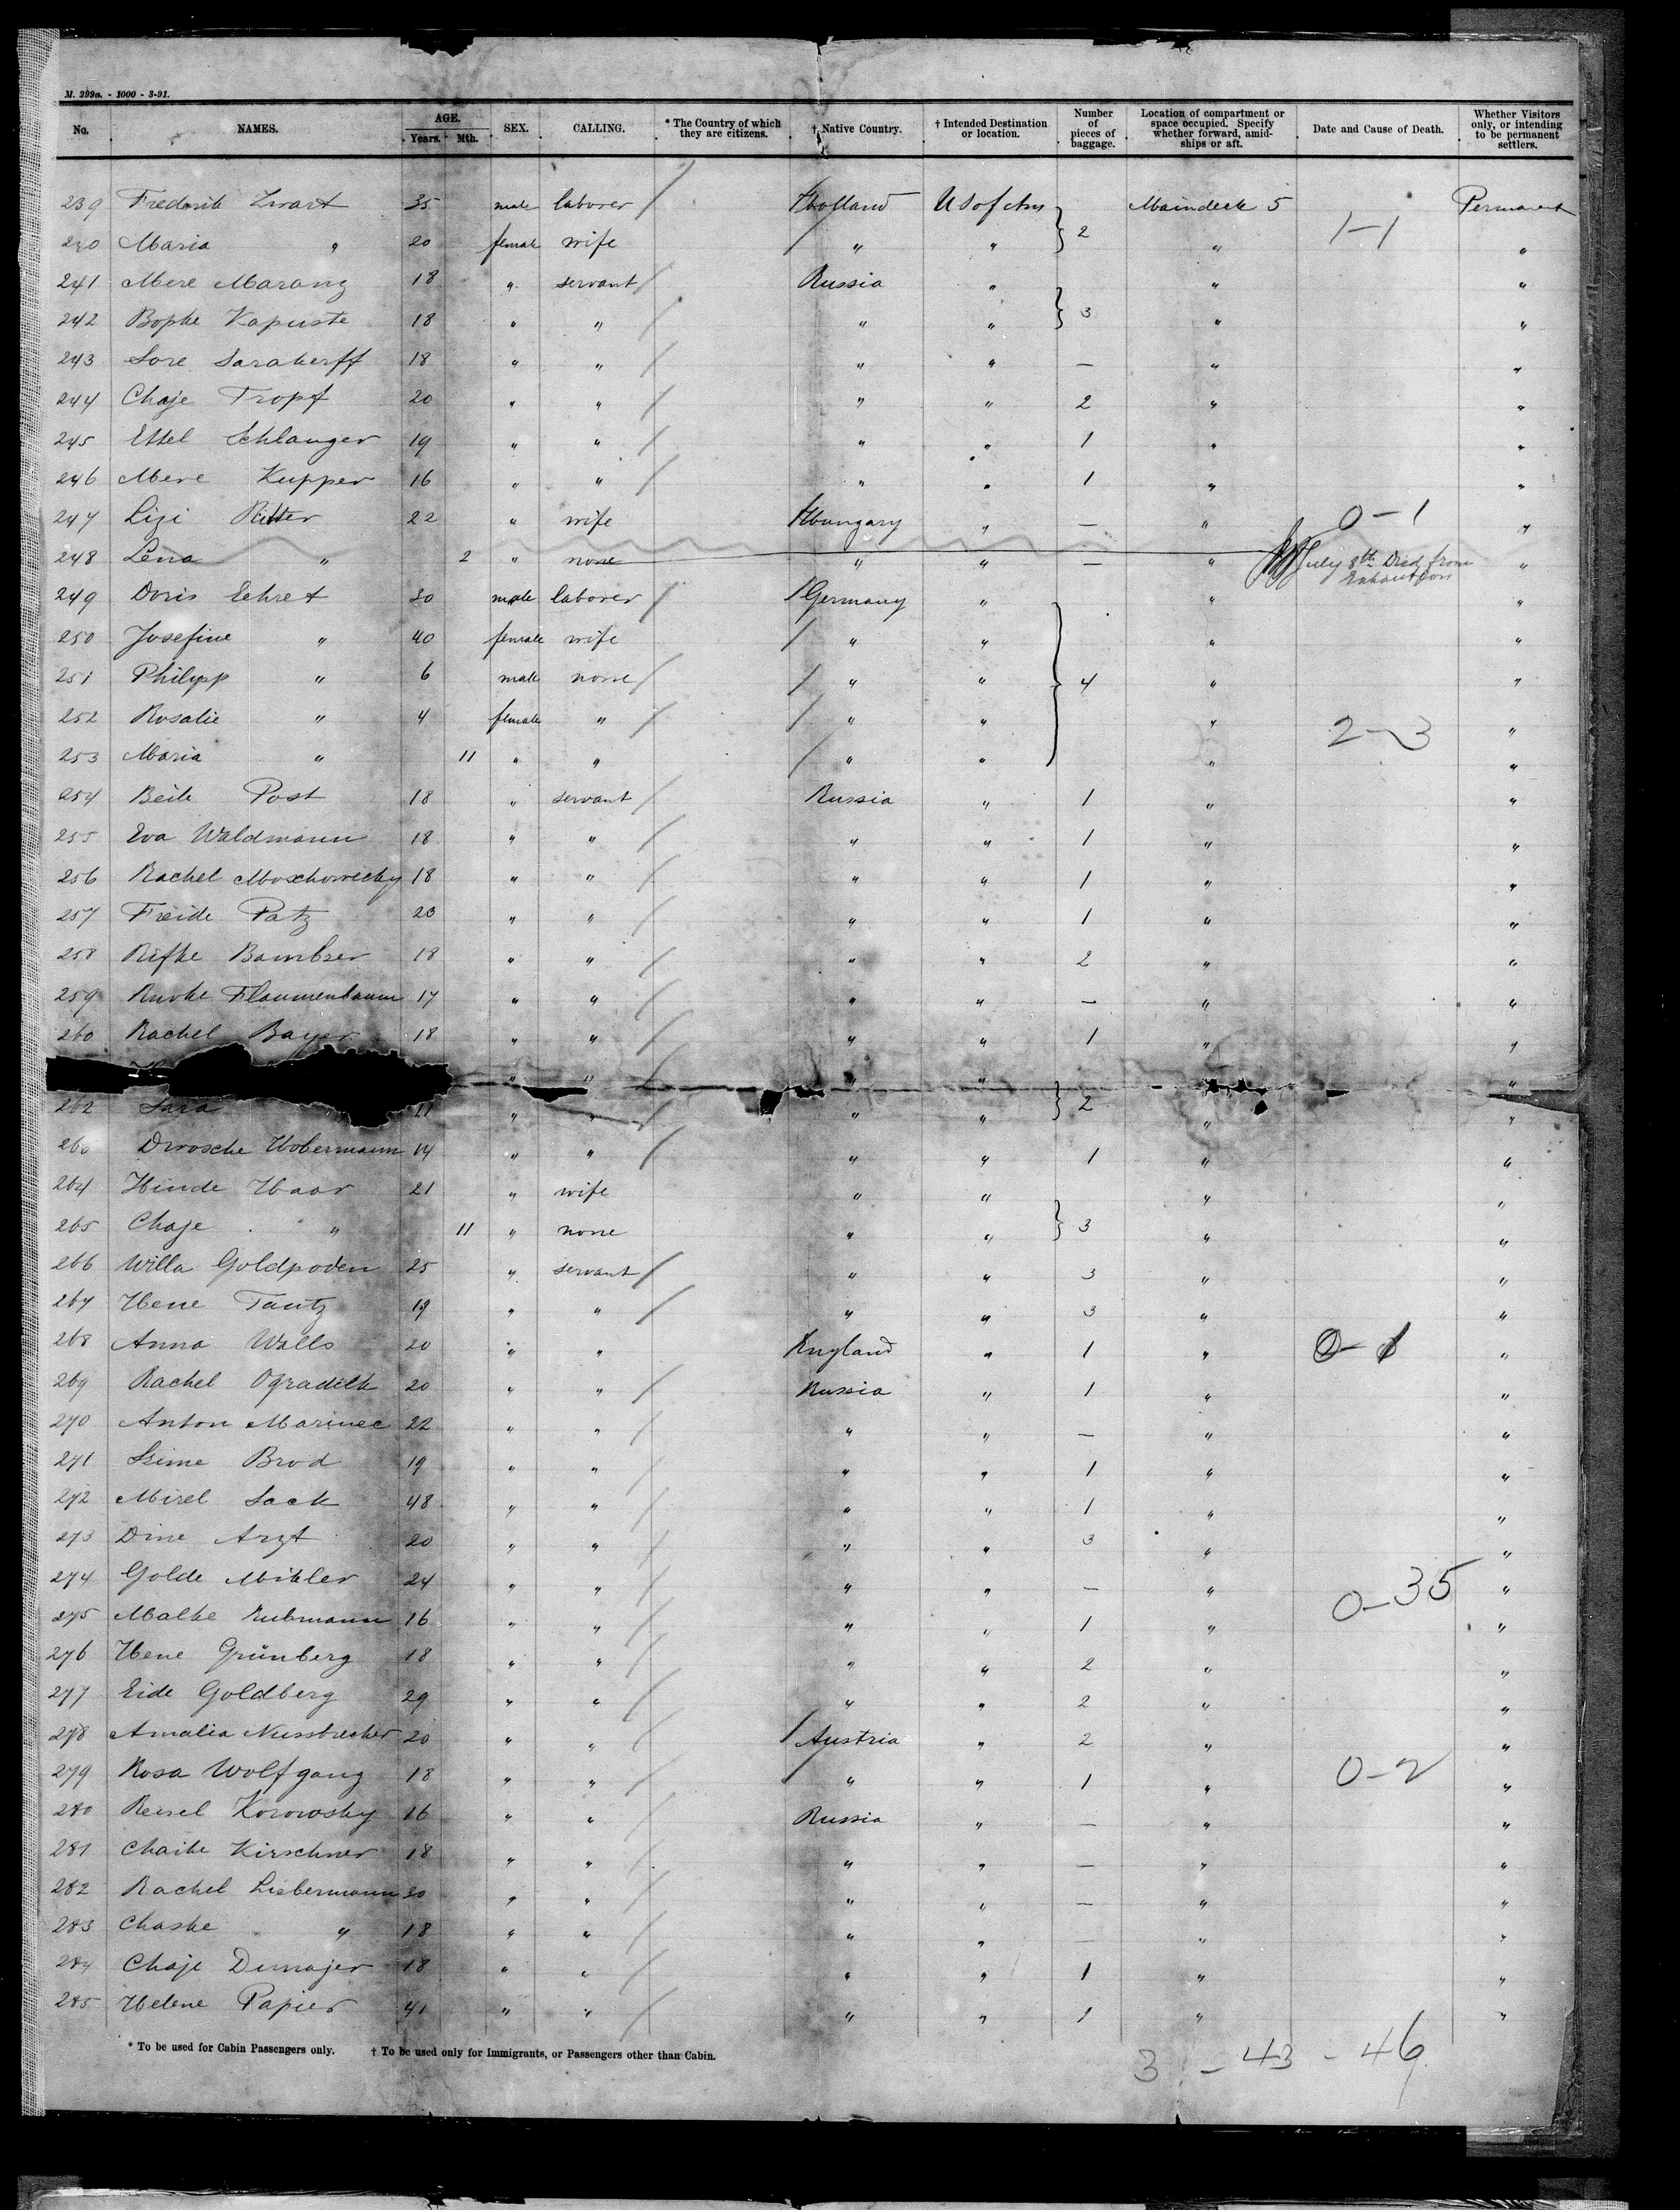 M. 299a. - 1000 - 3-91.
No. NAMES. AGE. Years. Mth. SEX. CALLING. * The Country of which they are citizens. † Native Country. † Intended Destination or location. Number of pieces of baggage. Location of compartment or space occupied. Specify whether forward, amidships or aft. Date and Cause of Death. Whether Visitors only, or intending to be permanent settlers.
239 Frederik Zwart 35 male laborer Holland US of Am Maindeck 5 Permanent
240 Maria " 20 female wife " " 2 " 1-1 "
241 Mere Marang 18 " servant Russia " " "
242 Bophe Kapuste 18 " " " " 3 " "
243 Sore 18 " " " " — " "
244 Chaje Tropf 20 " " " " 2 " "
245 Ettel Schlanger 19 " " " " 1 " "
246 Mere Kupper 16 " " " " 1 " "
247 Lizi Ritter 22 " wife Hungary " — " 0-1 "
248 Lena " 2 " none " " — " July 8th Died from Exhaustion "
249 Doris Eehret 30 male laborer Germany " " "
250 Josefine " 40 female wife " " " "
251 Philipp " 6 male none " " 4 " "
252 Rosalie " 4 female " " " " 2-3 "
253 Maria " 11 " " " " " "
254 Beile Post 18 " servant Russia " 1 " "
255 Eva Waldmann 18 " " " " 1 " "
256 Rachel 18 " " " " 1 " "
257 Freide Patz 23 " " " " 1 " "
258 Rifke 18 " " " " 2 " "
259 Flaumenbaum 17 " " " " — " "
260 Rachel Bayer 18 " " " " 1 " "
" " " " "
262 Sara " " " " 2 " "
Drosche Hobermann 14 " " " " 1 " "
264 Hinde Haar 21 " wife " " " "
265 Chaje " 11 " none " " 3 " "
266 Willa Goldpoden 25 " servant " " 3 " "
267 Hene Tantz 19 " " " " 3 " "
268 Anna Walls 20 " " England " 1 " "
269 Rachel 20 " " Russia " 1 " "
270 Anton Marinec 22 " " " " — " "
271 Brod 19 " " " " 1 " "
272 Mirel Sack 48 " " " " 1 " "
273 Dine Arzt 20 " " " " 3 " "
274 Golde Mikler 24 " " " " — " 0-35 "
275 Malke Rubmann 16 " " " " 1 " "
276 Hene Grünberg 18 " " " " 2 " "
277 Eide Goldberg 29 " " " " 2 " "
278 Amalia Nussbrecher 20 " " Austria " 2 " "
279 Rosa Wolfgang 18 " " " " 1 " 0-2 "
280 Reisel Korowsky 16 " " Russia " — " "
281 Chaike Kirschner 18 " " " " — " "
282 Rachel Liebermann 30 " " " " — " "
283 Chaske " 18 " " " " — " "
284 Chaje Dunajer 18 " " " " 1 " "
285 Helene Papier 41 " " " " 1 " "
* To be used for Cabin Passengers only. † To be used only for Immigrants, or Passengers other than Cabin.
3 - 43 - 46